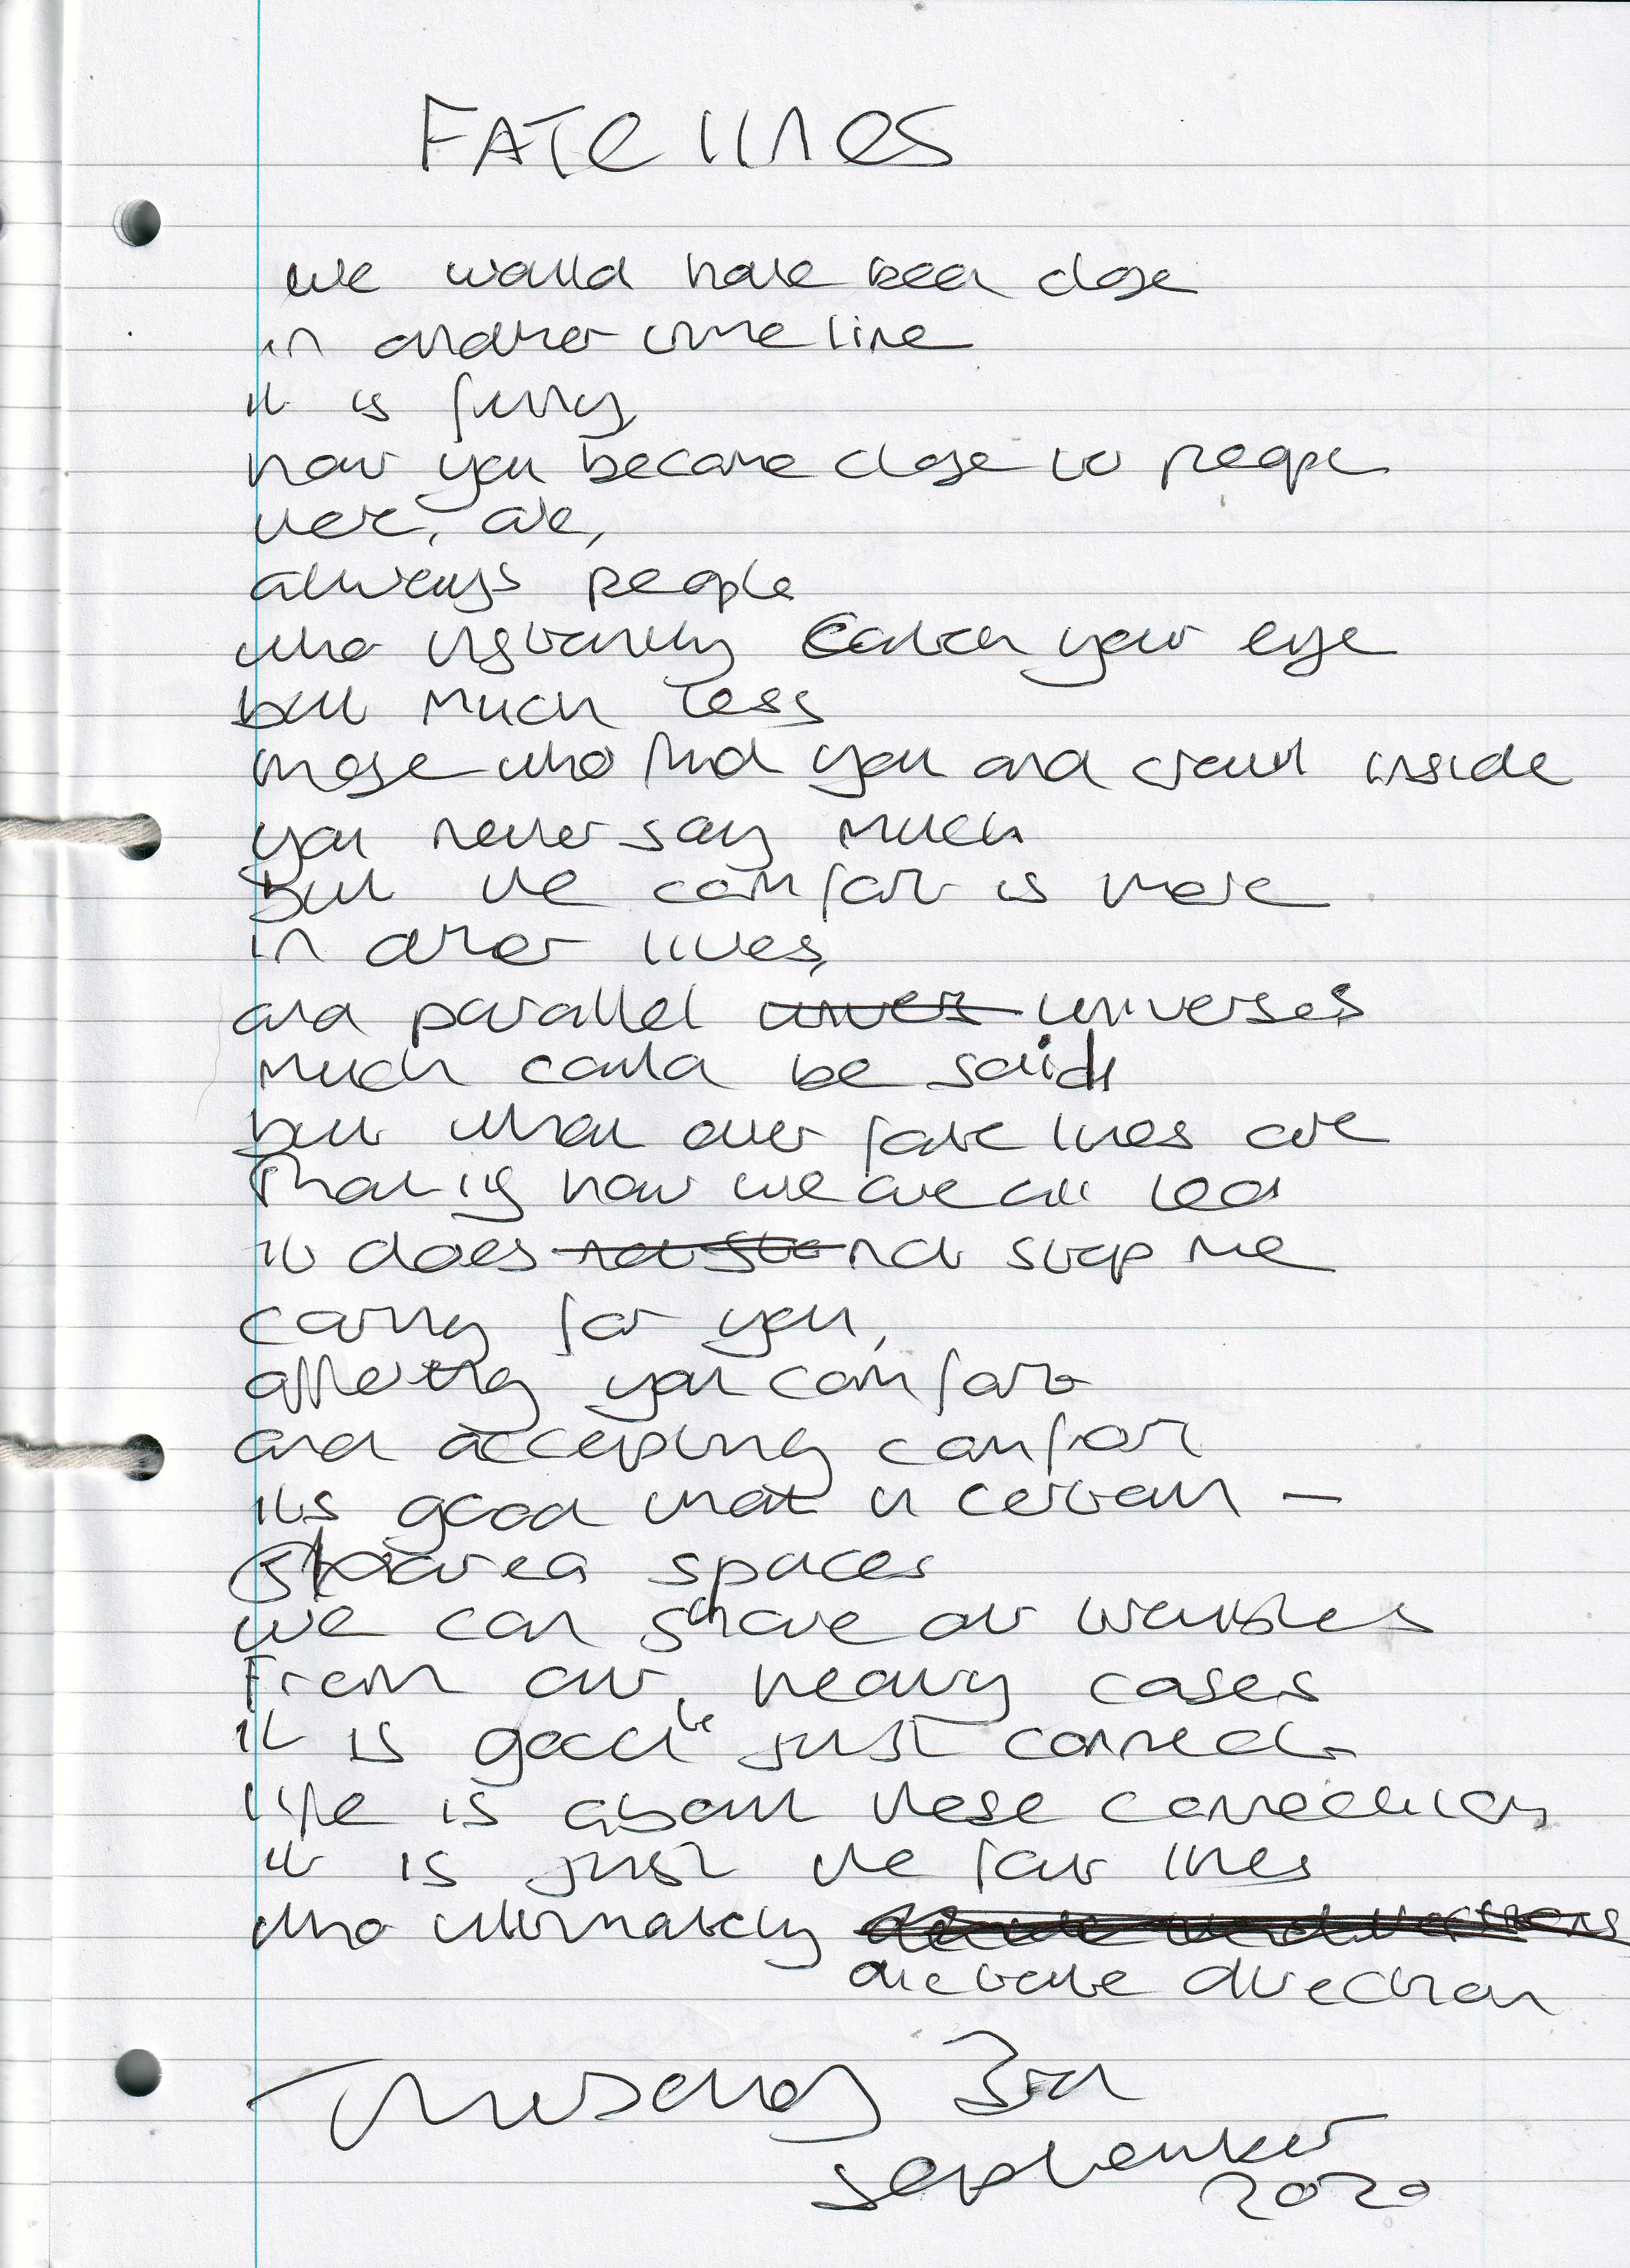 FATE lines
we would have been close
in another time line
it is funny
how you become close to people
there, are,
always people
who instantly catch your eye
but much less
those who find you and crawl inside
you never say much
but the comfort is there
in other lives,
and parallel univers universes
much could be said
but what our fate lines are
That is how we are all led
it does not sto not stop me
caring for you,
offering you comfort
and accepting comfort
its good that in certain –
shared spaces
we can share our troubles
From our, heavy cases
it is good to just connect
life is about these connections
it is just the fate lines
who ultimately
dictate direction
Thursday 3rd
September
2020